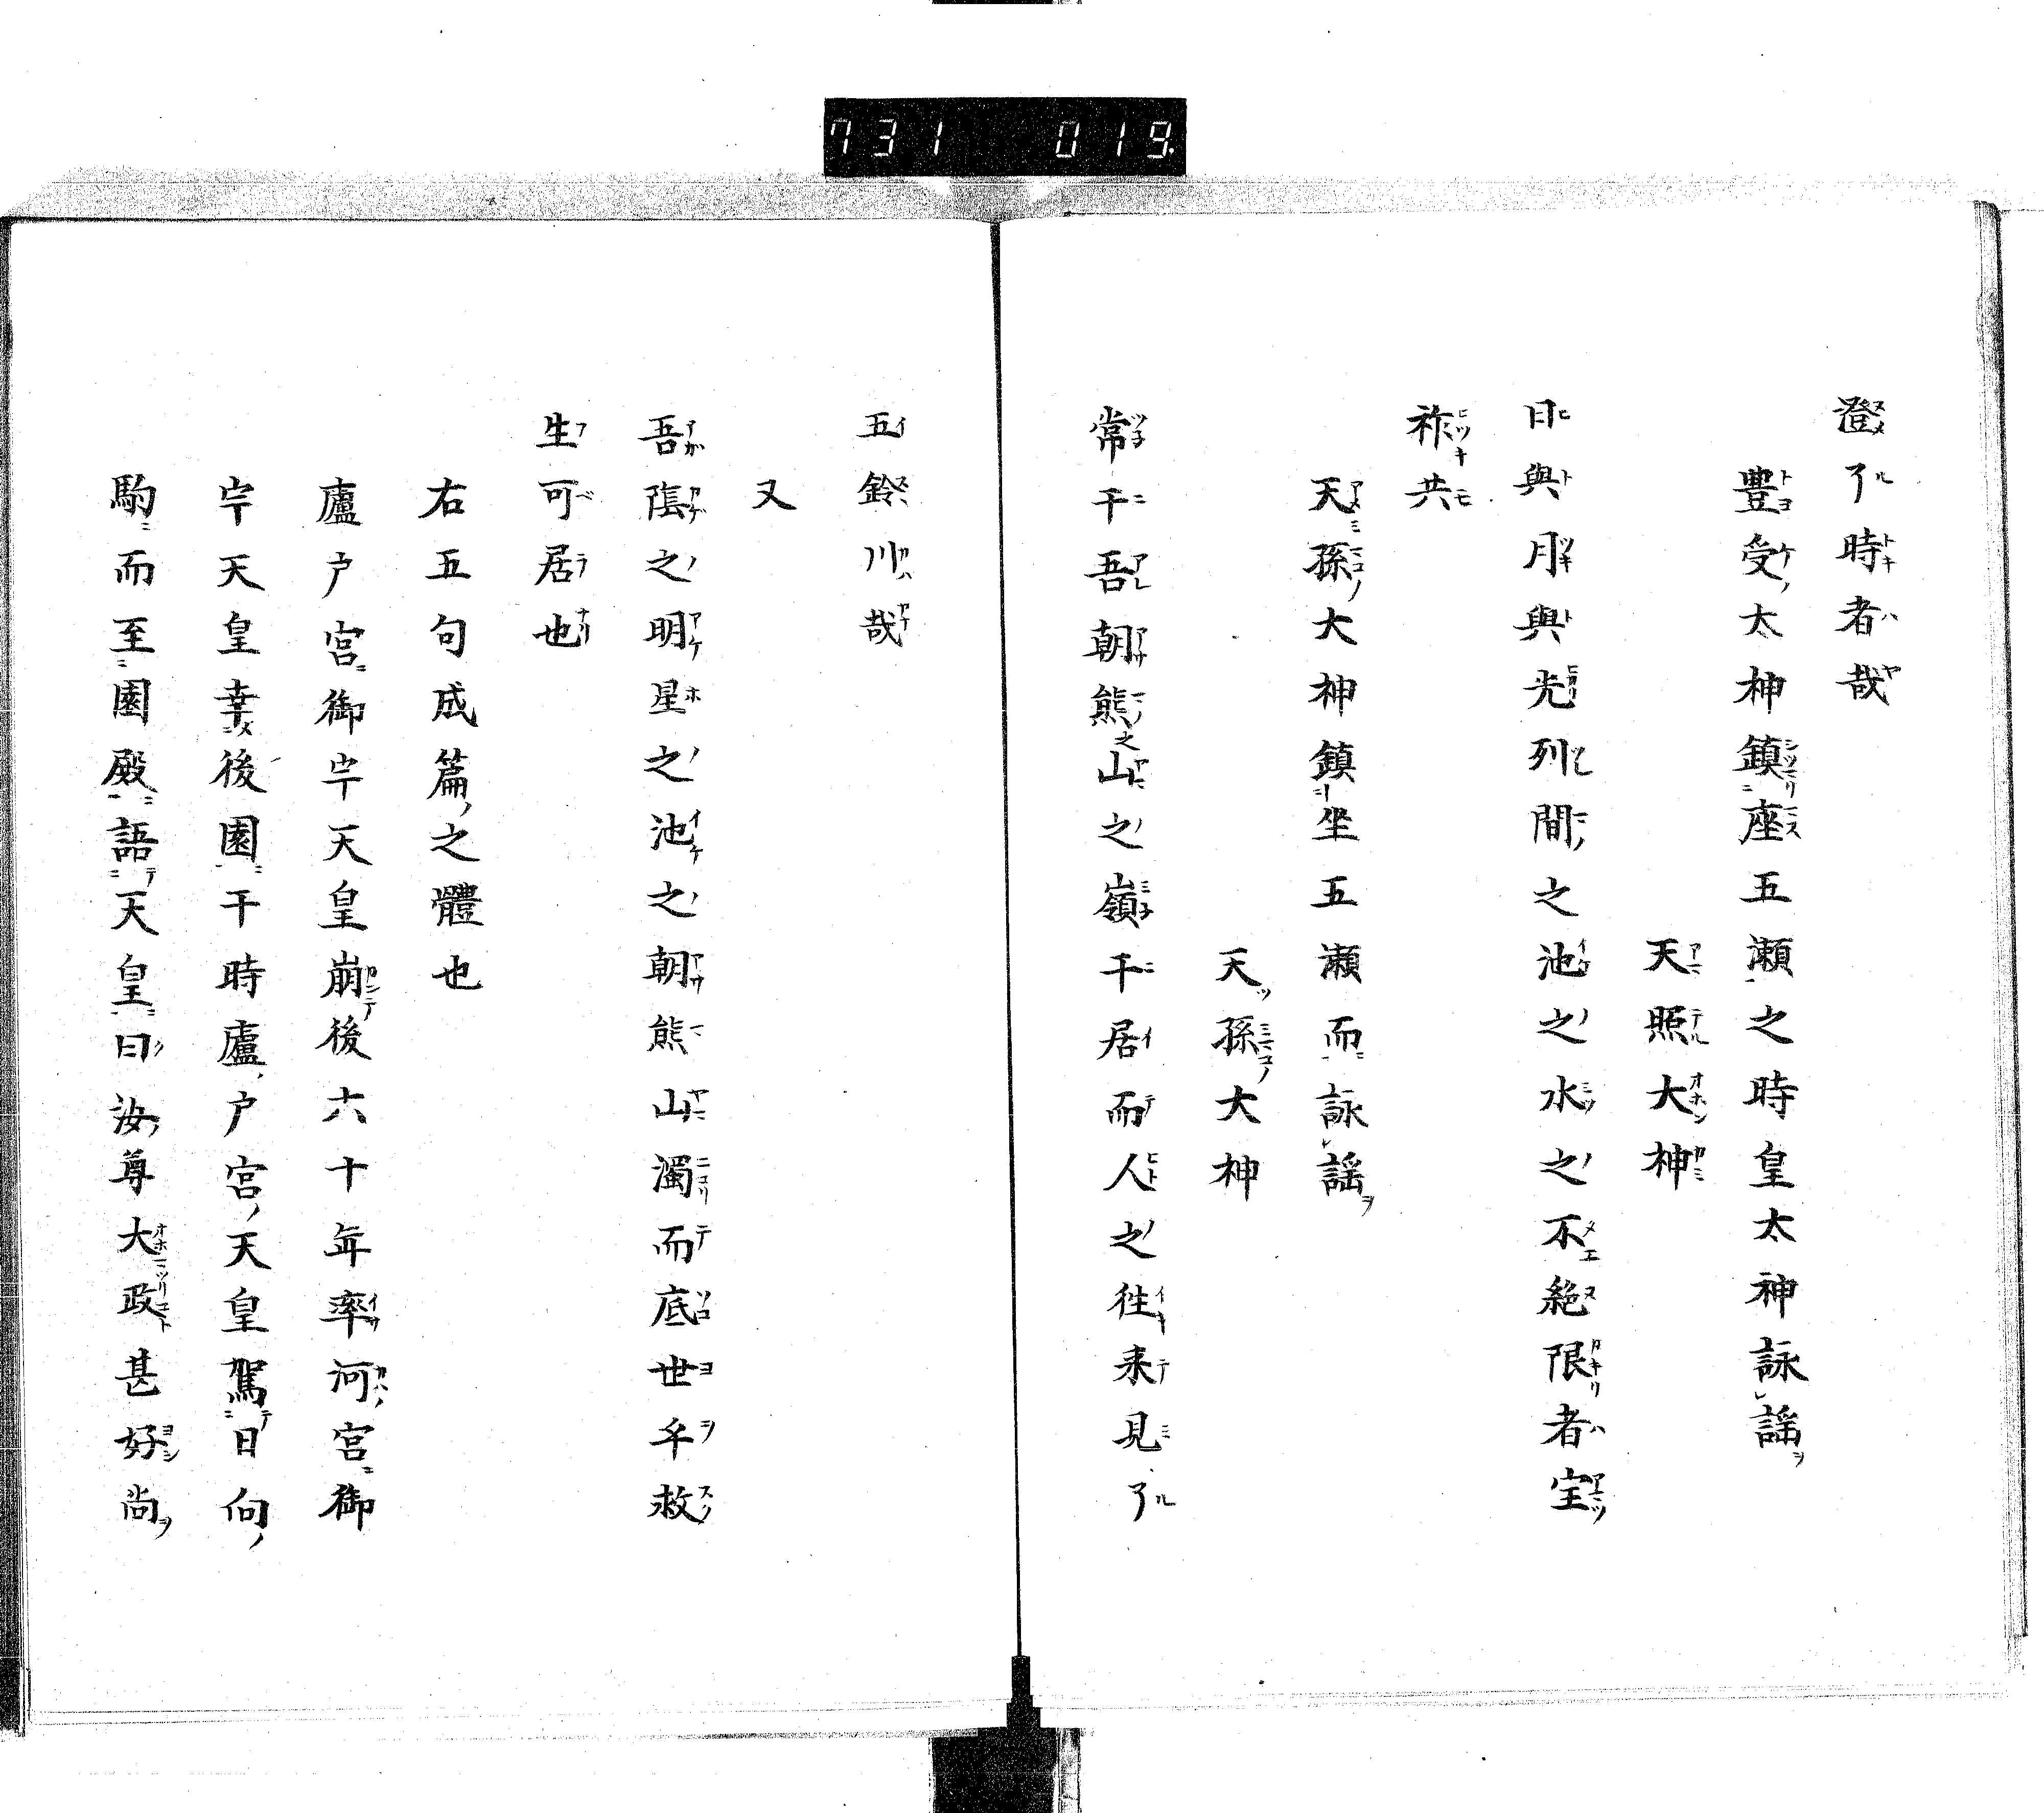 731 019
澄了時者哉
豊受太神鎮座五瀬之時皇太神詠謡
天照大神
日與月與光列間之池之水之不絶限者宝
祚共
天孫大神鎮坐五瀬而詠謡
天孫大神
常干吾朝熊之山之嶺干居而人之徃来見了
五鈴川哉
又
吾蔭之明星之池之朝熊山濁而底世乎救
生可居也
右五句成篇之體也
廬戸宮御宇天皇崩後六十年率河宮御
宇天皇幸後園干時廬戸宮天皇駕日向
駒而至園殿語天皇曰汝尊大政甚好尚